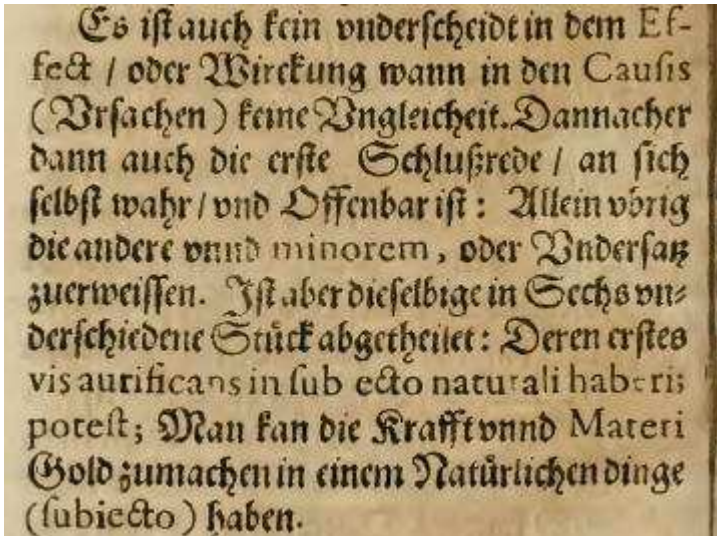 Es ist auch kein vnderscheidt in dem Ef-
fect / oder Wirckung wann in den Causis
(Vrsachen) keine Vngleicheit. Dannacher
dann auch die erste Schlußrede / an sich
selbst wahr / vnd Offenbar ist : Allein vbrig
die andere vnnd minorem, oder Vndersatz
zuerweissen. Ist aber dieselbige in Sechs vn-
derschiedene Stück abgetheilet : Deren erstes
vis aurificans in subiecto naturali haberi
potest; Man kan die Krafft vnnd Materi
Gold zumachen in einem Natürlichen dinge
(subiecto) haben.